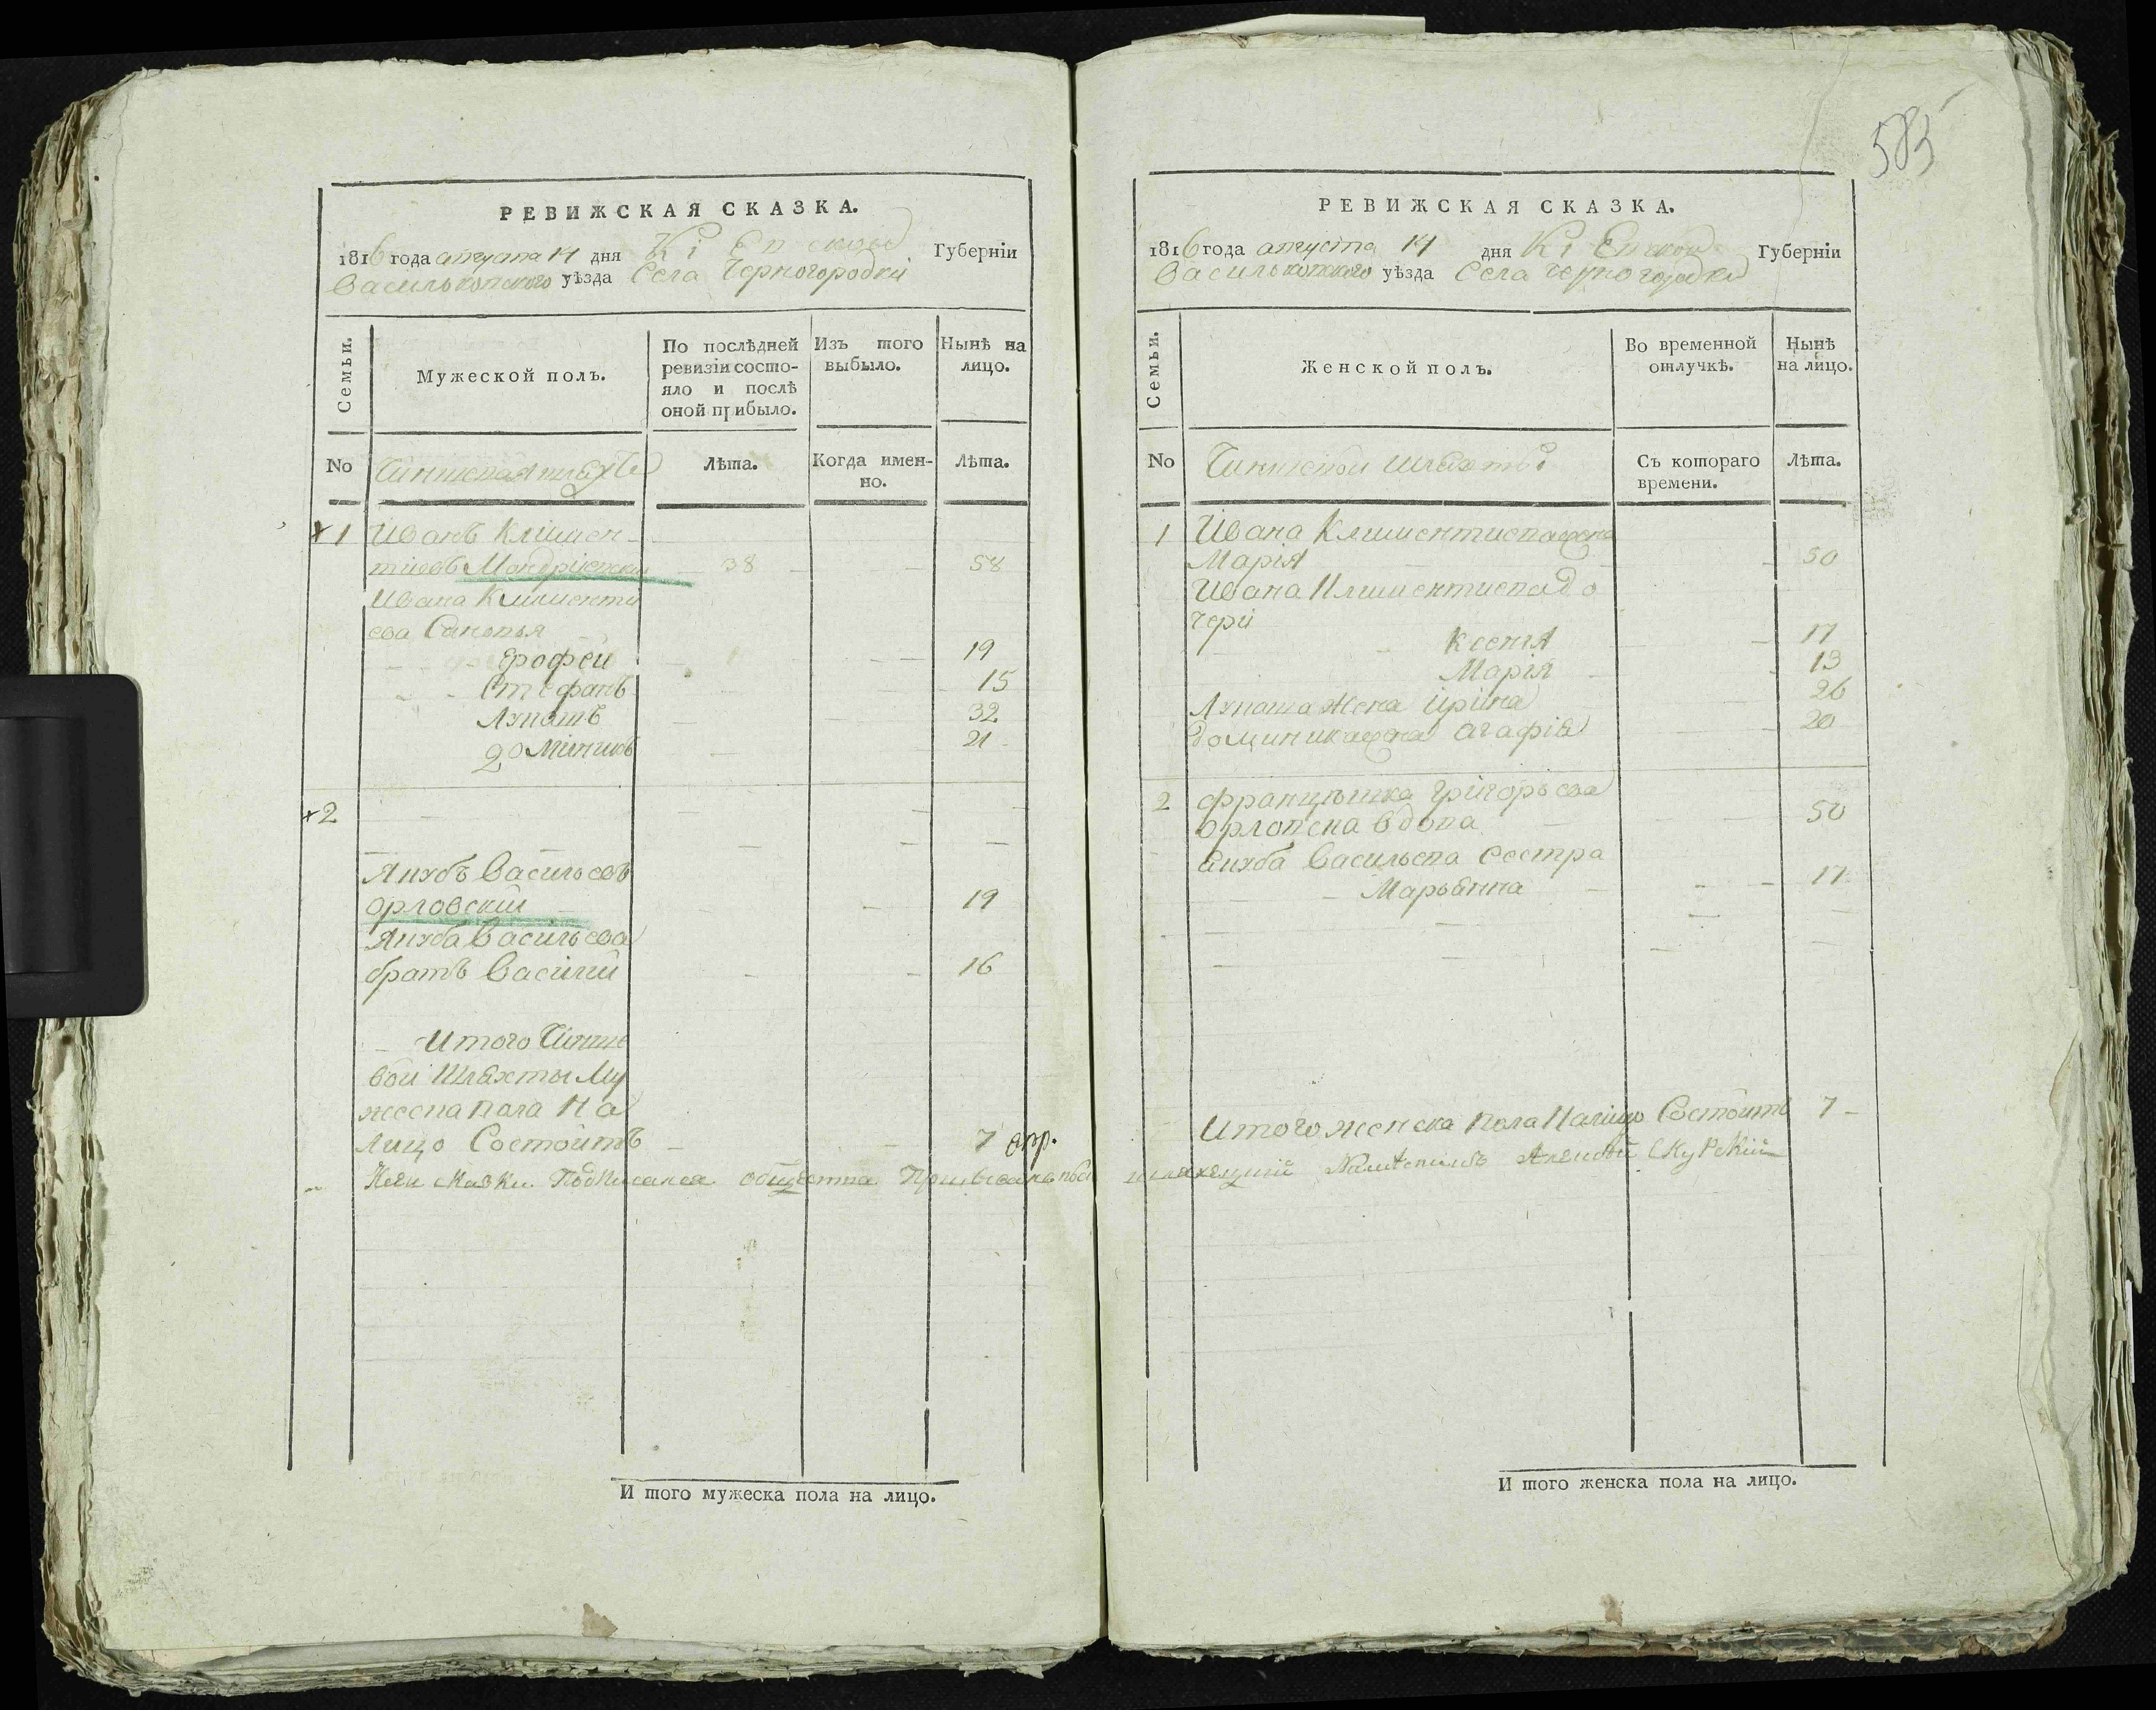 585
РЕВИЖСКАЯ СКАЗКА.
1816 года августа 14 дня Кіевской Губерніи
Васильковского уѣзда Села Черногородки
Семьи.
Мужеской полъ.
По послѣдней
ревизіи состо-
яло и послѣ
оной прибыло.
Изъ того
выбыло.
Нынѣ на
лицо.
No
Чиншевая шляхта
Лѣта.
Когда имен-
но.
Лѣта.
1 Иванъ Климен-
тиевъ 38 58
Ивана Клименти
ева Сыновья
Ерофей 19
Стефанъ 15
Лукашъ 32
Доминикъ 21
2
Якубъ Васильевъ
Орловский 19
Якуба Васильева
братъ Василий 16
Итого Чинше
вой Шляхты Му
жеска пола На
лицо Состоитъ 7
И того мужеска пола на лицо.
РЕВИЖСКАЯ СКАЗКА.
1816 года августа 14 дня Кіевской Губерніи
Васильковского уѣзда Села Черногородки
Семьи.
Женской полъ.
Во временной
отлучкѣ.
Нынѣ
на лицо.
No
Чиншевой шляхты
Съ котораго
времени.
Лѣта.
1 Ивана Климентиева жена
Марія 50
Ивана Климентиева до
чери
Ксенія 17
Марія 13
Лукаша жена Ирина 26
Доминика жена Агафія 20
2 Францишка Григорьева
Орловска вдова 50
Якуба Васильева сестра
Марьянна 17
Итого женска пола Налицо Состоитъ 7
И того женска пола на лицо.